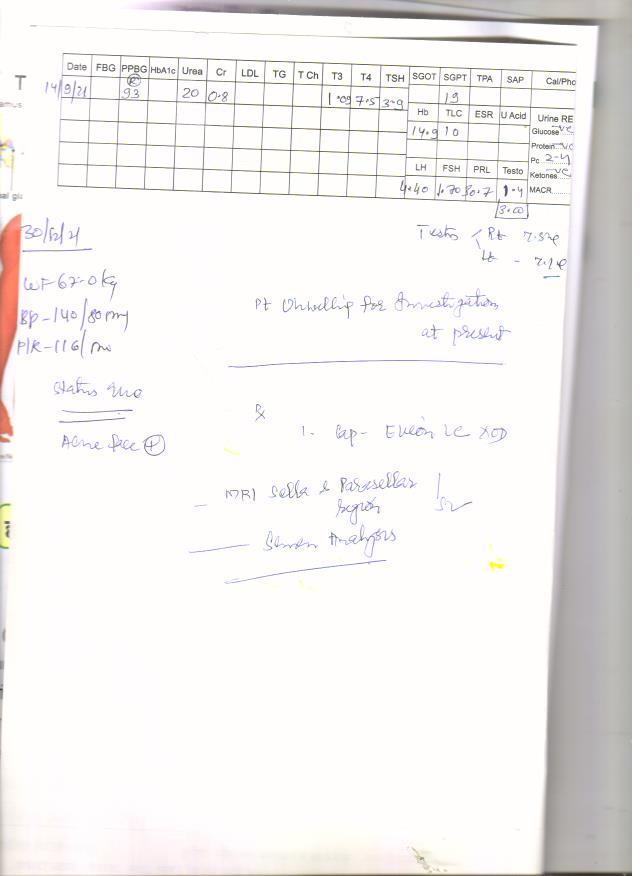 T
amus
al glu
Date FBG PPBG HbA1c Urea Cr LDL TG T Ch T3 T4 TSH SGOT SGPT TPA SAP Cal/Pho
14/9/21 (R) 93 20 0.8 1.09 7.5 3.9 19
Hb TLC ESR U Acid Urine RE
14.9 10 Glucose -ve
Protein -ve
Pc 2-4
LH FSH PRL Testo Ketones -ve
4.40 30.7 1.4 MACR
3.00
30/12/21
Testes Rt
Lt
WT-67.0kg
BP-140/80
P/R-116/m
Pt Unwilling for Investigations
at present
Status Quo
Acne face (+)
1. Cap- Evion LC x OD
MRI Sella & Parasellar
Region
Semen Analysis